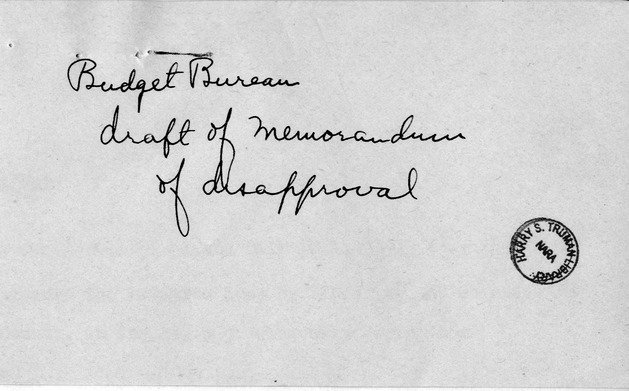 Budget Bureau
draft of Memorandum
of disapproval
HARRY S. TRUMAN
NARA
LIBRARY